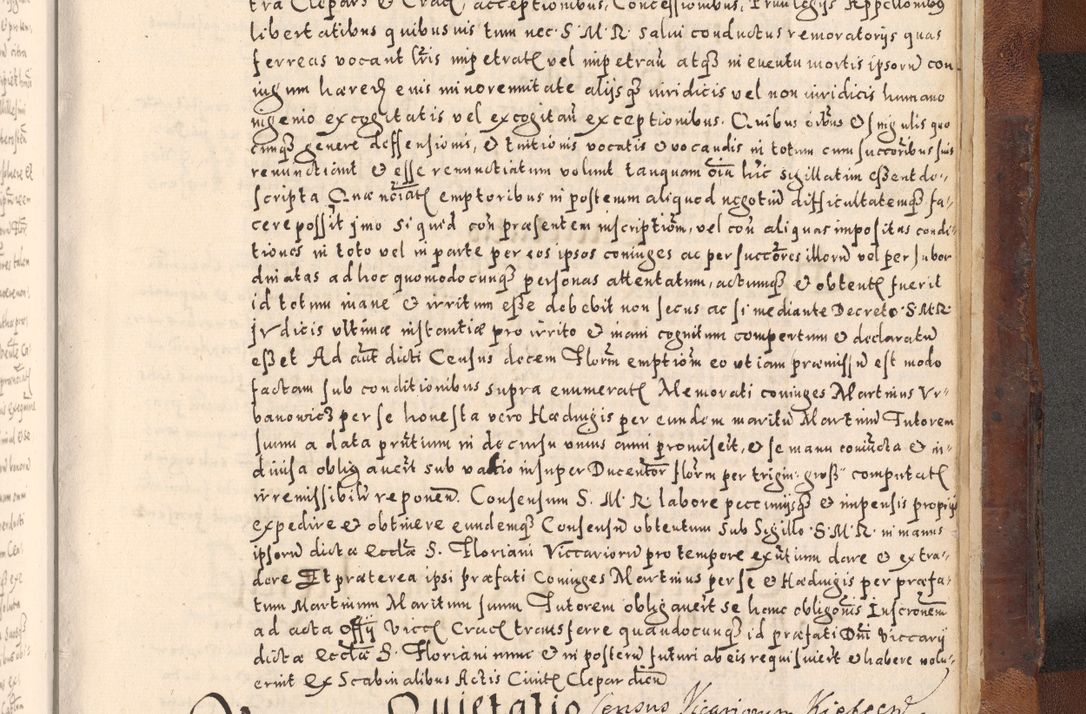 tra Clepars & Crac, acceptionibus, Concessionibus, Priuilegijs Appellonibus
libertatibus quibusuis tum nec S. M. R. salui conductus remoratorijs quas
ferreas vocant Lris impetrat vel impetrari atqꝫ in euentu mortis ipsoru con
iugum hæred eius minorennitate alijsqꝫ iuridicis vel non iuridicis humano
ingenio excogitatis vel excogitari exceptionibus. Quibus oibus & singulis quo
cunqꝫ genere deffensionis, & tuitionis vocatis & vocandis in totum cum succoribus suis
renunctient & esse renunctiatum volunt tanquam oia hic sigillatim essent de-
scripta Quæ emptoribus in posterum aliquod negotiu difficultatemqꝫ fa-
cere possit jmo si quid con præsentem inscriptiom, vel con aliquas impositas condi-
tiones in toto vel in parte per eos ipsos coniuges ac per succores illoru vel per subor
dinatas ad hoc quomodocunqꝫ personas attentatum, actumqꝫ & obtent fuerit
id totum inane & irritum esse debebit non secus ac si mediante Decreto S. M. R.
Iudicis vltimæ instantiæ pro irrito & inani cognitum compertum & declaratu
esset Ad aut dicti Census decem Floru emptiom eo vt iam præmissu est modo
factam sub conditionibus supra enumerat Memorati coniuges Martinus Vr-
banowicz per se honesta vero Hædwigis per eundem maritu Martinu Tutorem
suum a data prntium in decursu vnius anni promiseit, & se manu coniucta & in-
diuisa obligauert sub vadio insuper Ducentor florm per trigin: gross computat
irremissibilr reponen. Consensum S. M. R. labore pecunijsqꝫ & impensis proprijs
expedire & obtinere eundemqꝫ Consensu obtentum sub Sigillo S. M. R. in manus
ipsoru dictæ Ecclæ S. Floriani Viccarioru pro tempore exntium dare & extra-
dere Et præterea ipsi præfati Coniuges Martinus per se & Hædwigis per præfa-
tum Martinum Maritum suum Tutorem obligauert se hanc obligonis Inscronem
ad acta Offij Vicc Crac transferre quandocunqꝫ id præfati Dni Viccarij
dictæ Ecclæ S. Floriani nunc & in posteru futuri ab eis requisiuert & habere volu-
erint Ex Scabinalibus Actis Ciuit Clepardien
Quietatio Census Vicariorum